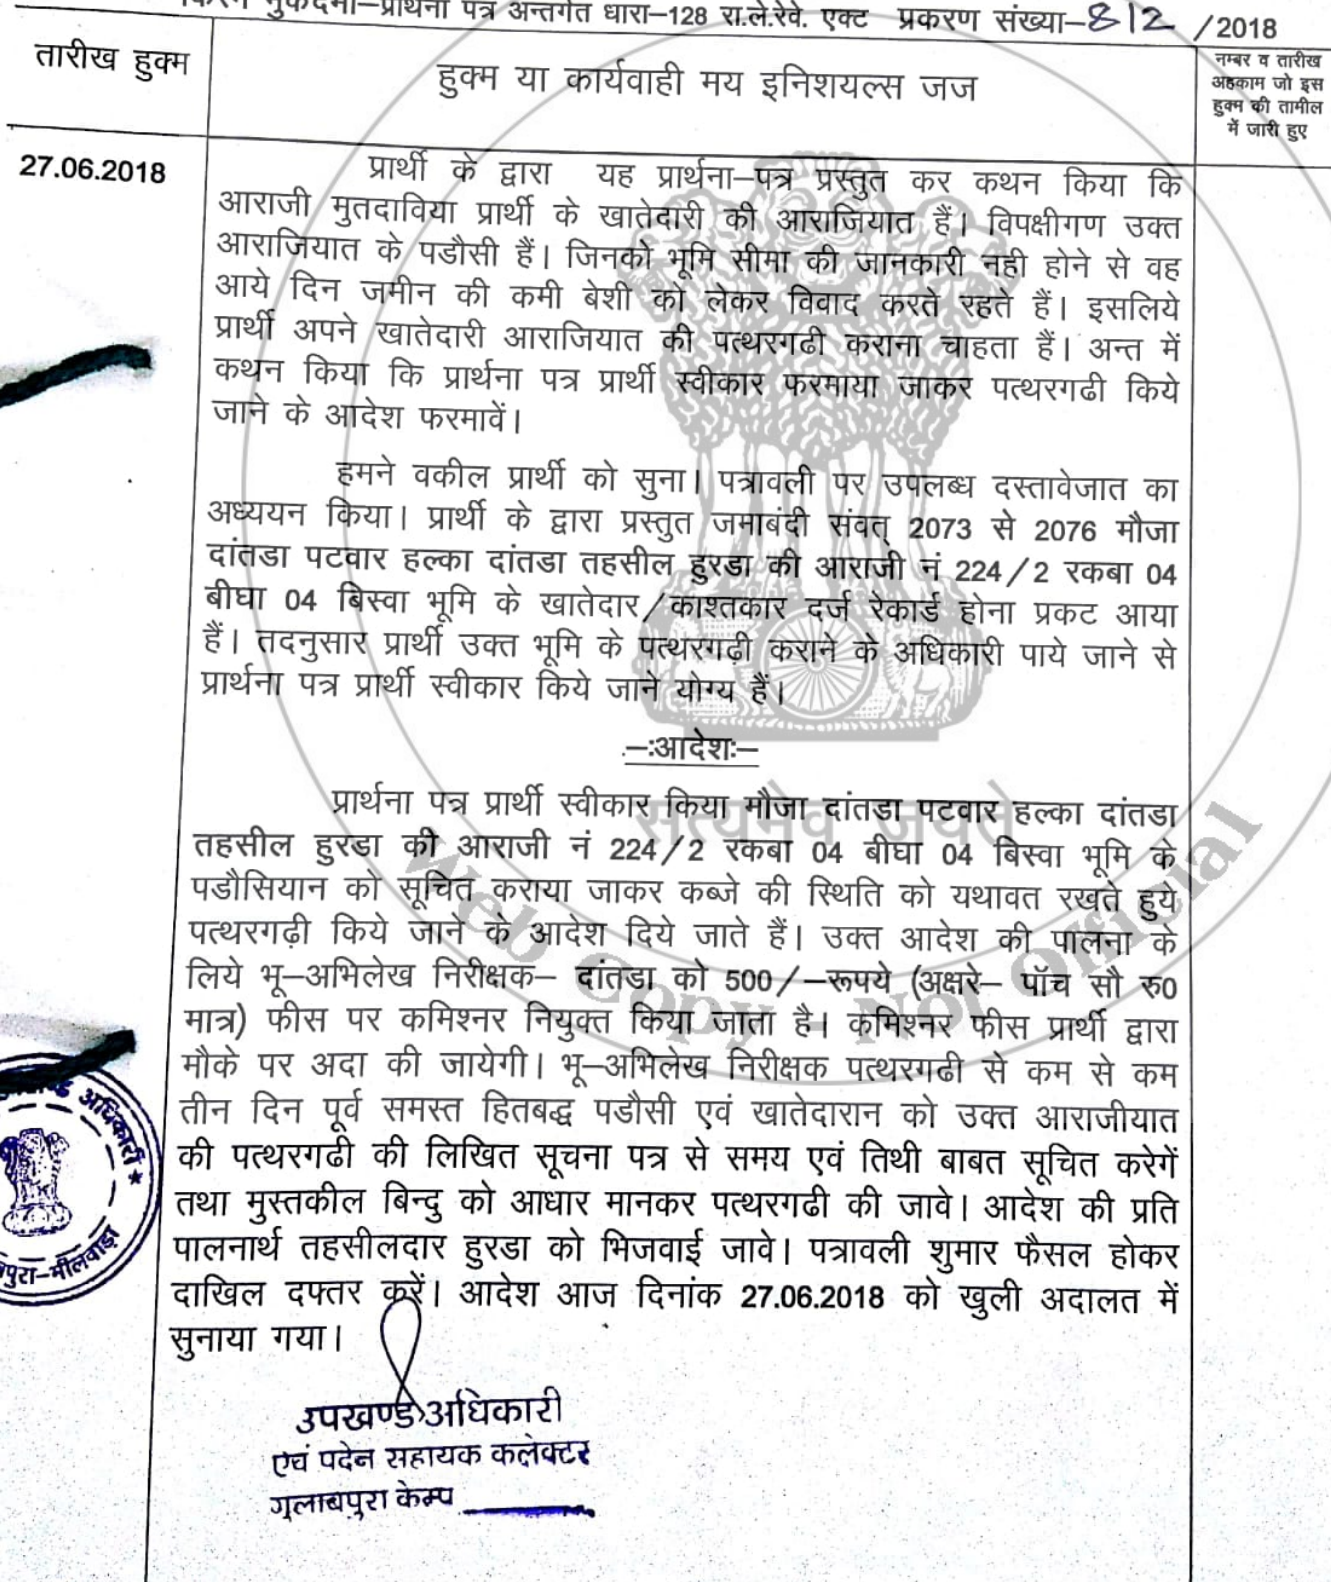 मुकदमा–प्रार्थना पत्र अन्तर्गत धारा–128 रा.ले.रेवे. एक्ट प्रकरण संख्या–812 /2018
तारीख हुक्म
हुक्म या कार्यवाही मय इनिशयल्स जज
नम्बर व तारीख
अहकाम जो इस
हुक्म की तामील
में जारी हुए
27.06.2018
प्रार्थी के द्वारा यह प्रार्थना–पत्र प्रस्तुत कर कथन किया कि
आराजी मुतदाविया प्रार्थी के खातेदारी की आराजियात हैं। विपक्षीगण उक्त
आराजियात के पडौसी हैं। जिनको भूमि सीमा की जानकारी नही होने से वह
आये दिन जमीन की कमी बेशी को लेकर विवाद करते रहते हैं। इसलिये
प्रार्थी अपने खातेदारी आराजियात की पत्थरगढी कराना चाहता हैं। अन्त में
कथन किया कि प्रार्थना पत्र प्रार्थी स्वीकार फरमाया जाकर पत्थरगढी किये
जाने के आदेश फरमावें।
हमने वकील प्रार्थी को सुना। पत्रावली पर उपलब्ध दस्तावेजात का
अध्ययन किया। प्रार्थी के द्वारा प्रस्तुत जमाबंदी संवत् 2073 से 2076 मौजा
दांतडा पटवार हल्का दांतडा तहसील हुरडा की आराजी नं 224/2 रकबा 04
बीघा 04 बिस्वा भूमि के खातेदार/काश्तकार दर्ज रेकार्ड होना प्रकट आया
हैं। तदनुसार प्रार्थी उक्त भूमि के पत्थरगढ़ी कराने के अधिकारी पाये जाने से
प्रार्थना पत्र प्रार्थी स्वीकार किये जाने योग्य हैं।
–:आदेशः–
प्रार्थना पत्र प्रार्थी स्वीकार किया मौजा दांतडा पटवार हल्का दांतडा
तहसील हुरडा की आराजी नं 224/2 रकबा 04 बीघा 04 बिस्वा भूमि के
पडौसियान को सूचित कराया जाकर कब्जे की स्थिति को यथावत रखते हुये
पत्थरगढ़ी किये जाने के आदेश दिये जाते हैं। उक्त आदेश की पालना के
लिये भू–अभिलेख निरीक्षक– दांतडा को 500/–रूपये (अक्षरे– पॉच सौ रु0
मात्र) फीस पर कमिश्नर नियुक्त किया जाता है। कमिश्नर फीस प्रार्थी द्वारा
मौके पर अदा की जायेगी। भू–अभिलेख निरीक्षक पत्थरगढी से कम से कम
तीन दिन पूर्व समस्त हितबद्ध पडौसी एवं खातेदारान को उक्त आराजीयात
की पत्थरगढी की लिखित सूचना पत्र से समय एवं तिथी बाबत सूचित करेगें
तथा मुस्तकील बिन्दु को आधार मानकर पत्थरगढी की जावे। आदेश की प्रति
पालनार्थ तहसीलदार हुरडा को भिजवाई जावे। पत्रावली शुमार फैसल होकर
दाखिल दफ्तर करें। आदेश आज दिनांक 27.06.2018 को खुली अदालत में
सुनाया गया।
सत्यमेव जयते
Web Copy - Not Official
अधिकारी ★
उपखण्ड अधिकारी
एवं पदेन सहायक कलेक्टर
गुलाबपुरा केम्प